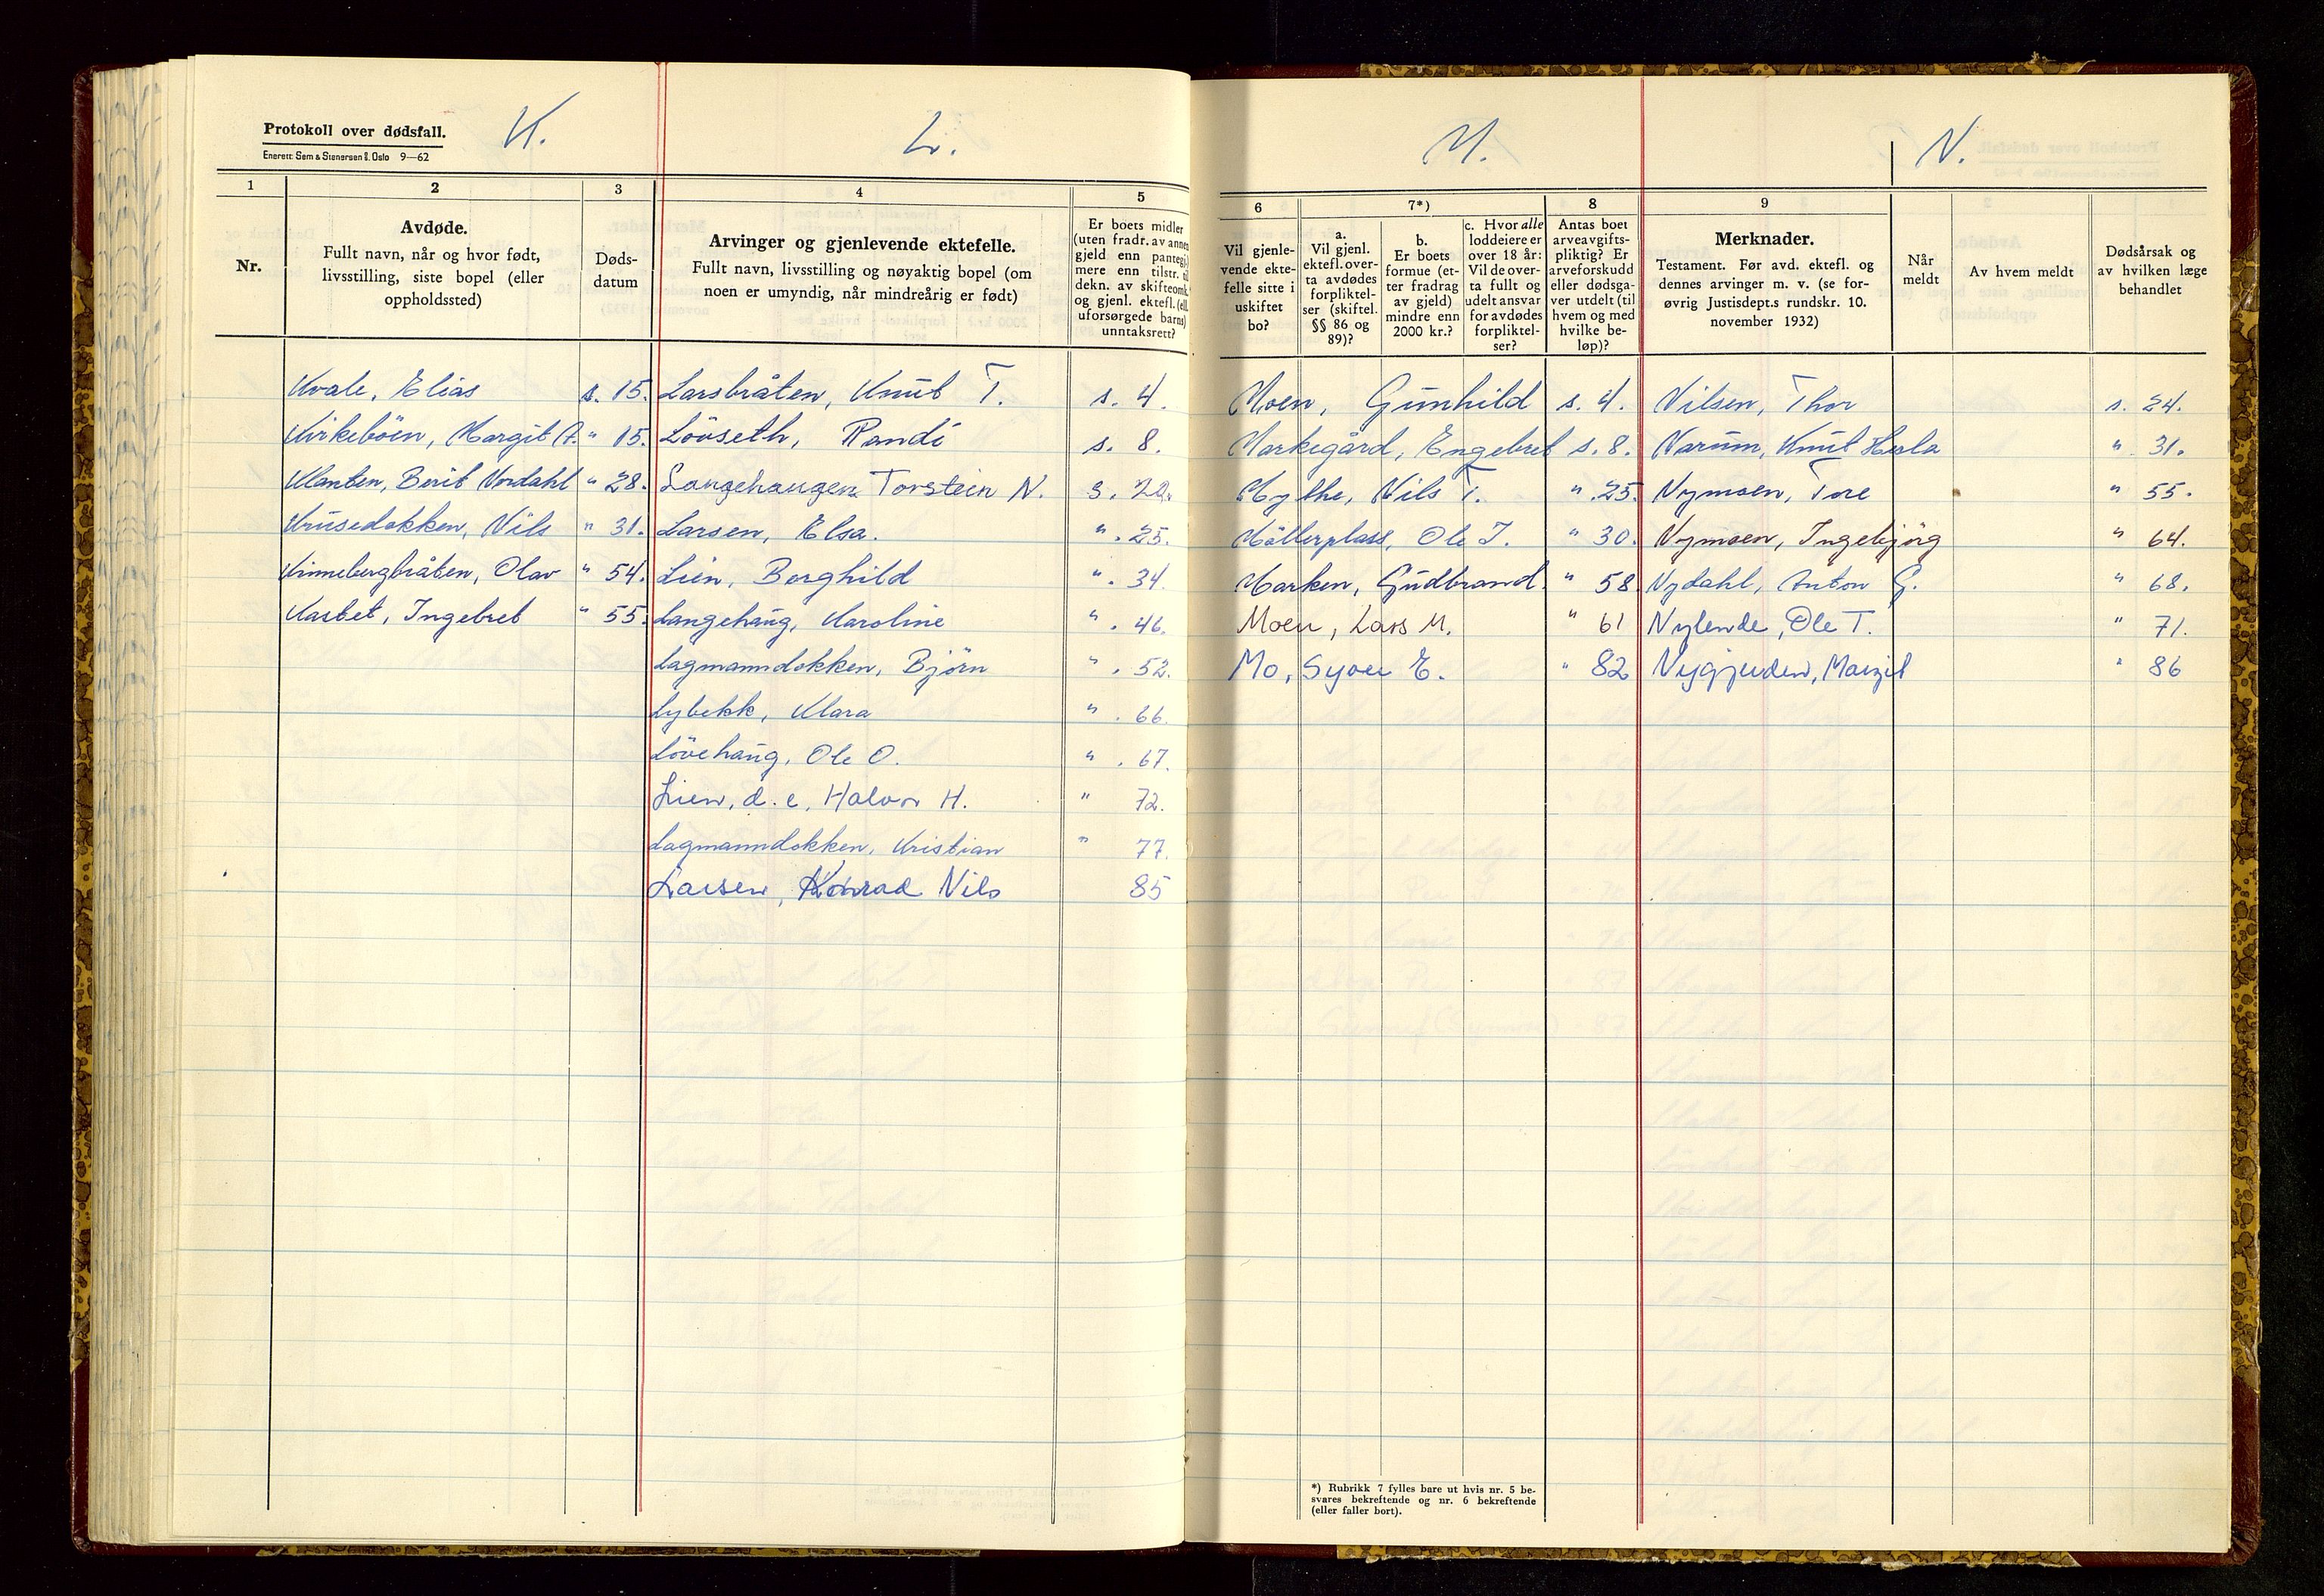 Protokoll over dødsfall.
Enerett: Sem & Stenersen A/S. Oslo 9—62
K.
L.
1
2
3
4
5
Nr.
Avdøde.
Fullt navn, når og hvor født,
livsstilling, siste bopel (eller
oppholdssted)
Døds-
datum
Arvinger og gjenlevende ektefelle.
Fullt navn, livsstilling og nøyaktig bopel (om
noen er umyndig, når mindreårig er født)
Er boets midler
(uten fradr. av annen
gjeld enn pantegj.)
mere enn tilstr. til
dekn. av skifteomk.
og gjenl. ektefl. (ell.
uforsørgede barns)
unntaksrett?
Kvale, Elias s. 15.
Kirkeböen, Margit A. " 15.
Klanten, Berit Nordahl " 28.
Krusedokken, Nils " 31.
Kinnebergbråten, Olav " 54.
Kastet, Ingebret " 55.
Larsbråten, Knut T. s. 4.
Lövseth, Randi s. 8.
Langehaugen Torstein N. s. 22.
Larsen, Elsa. " . 25.
Lien, Borghild " . 34.
Langehaug, Karoline " . 46.
Lagmanndokken, Björn " . 52.
Lybekk, Klara " . 66.
Lövehaug, Ole O. " . 67.
Lien, d.e, Halvor H. " 72.
Lagmanndokken, Kristian " 77.
Larsen, Konrad Nils 85
M.
N.
6
7*)
8
9
Vil gjenle-
vende ekte-
felle sitte i
uskiftet
bo?
a.
Vil gjenl.
ektefl. over-
ta avdødes
forpliktel-
ser (skiftel.
§§ 86 og
89)?
b.
Er boets
formue (et-
ter fradrag
av gjeld)
mindre enn
2000 kr.?
c. Hvor alle
loddeiere er
over 18 år:
Vil de over-
ta fullt og
udelt ansvar
for avdødes
forpliktel-
ser?
Antas boet
arveavgifts-
pliktig? Er
arveforskudd
eller dødsga-
ver utdelt (til
hvem og med
hvilke be-
løp)?
Merknader.
Testament. Før avd. ektefl. og
dennes arvinger m. v. (se for-
øvrig Justisdept.s rundskr. 10.
november 1932)
Når
meldt
Av hvem meldt
Dødsårsak og
av hvilken læge
behandlet
Moen, Gunhild s. 4.
Markegård, Engebret s. 8.
Mythe, Nils T. " . 25.
Möllerplass, Ole J. " 30.
Marken, Gudbrand. " 58.
Moen, Lars M. " 61
Mo, Syver E. " 82
Nilsen, Thor s. 24.
Narum, Knut Hesla " 31.
Nymoen, Tore " 55.
Nymoen, Ingebjörg " 64.
Nydahl, Anton G. " 68.
Nylende, Ole T. " 71.
Nygjerden, Margit " 86
*) Rubrikk 7 fylles bare ut hvis nr. 5 be-
svares bekreftende og nr. 6 bekreftende
(eller faller bort).